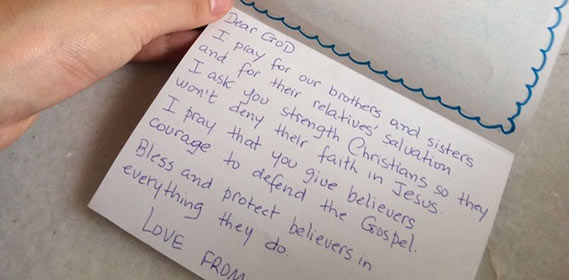 Dear GOD
I pray for our brothers and sisters
and for their relatives' salvation
I ask you strength Christians so they
won't deny their faith in Jesus.
I pray that you give believers
courage to defend the Gospel.
Bless and protect believers in
everything they do.
LOVE FROM